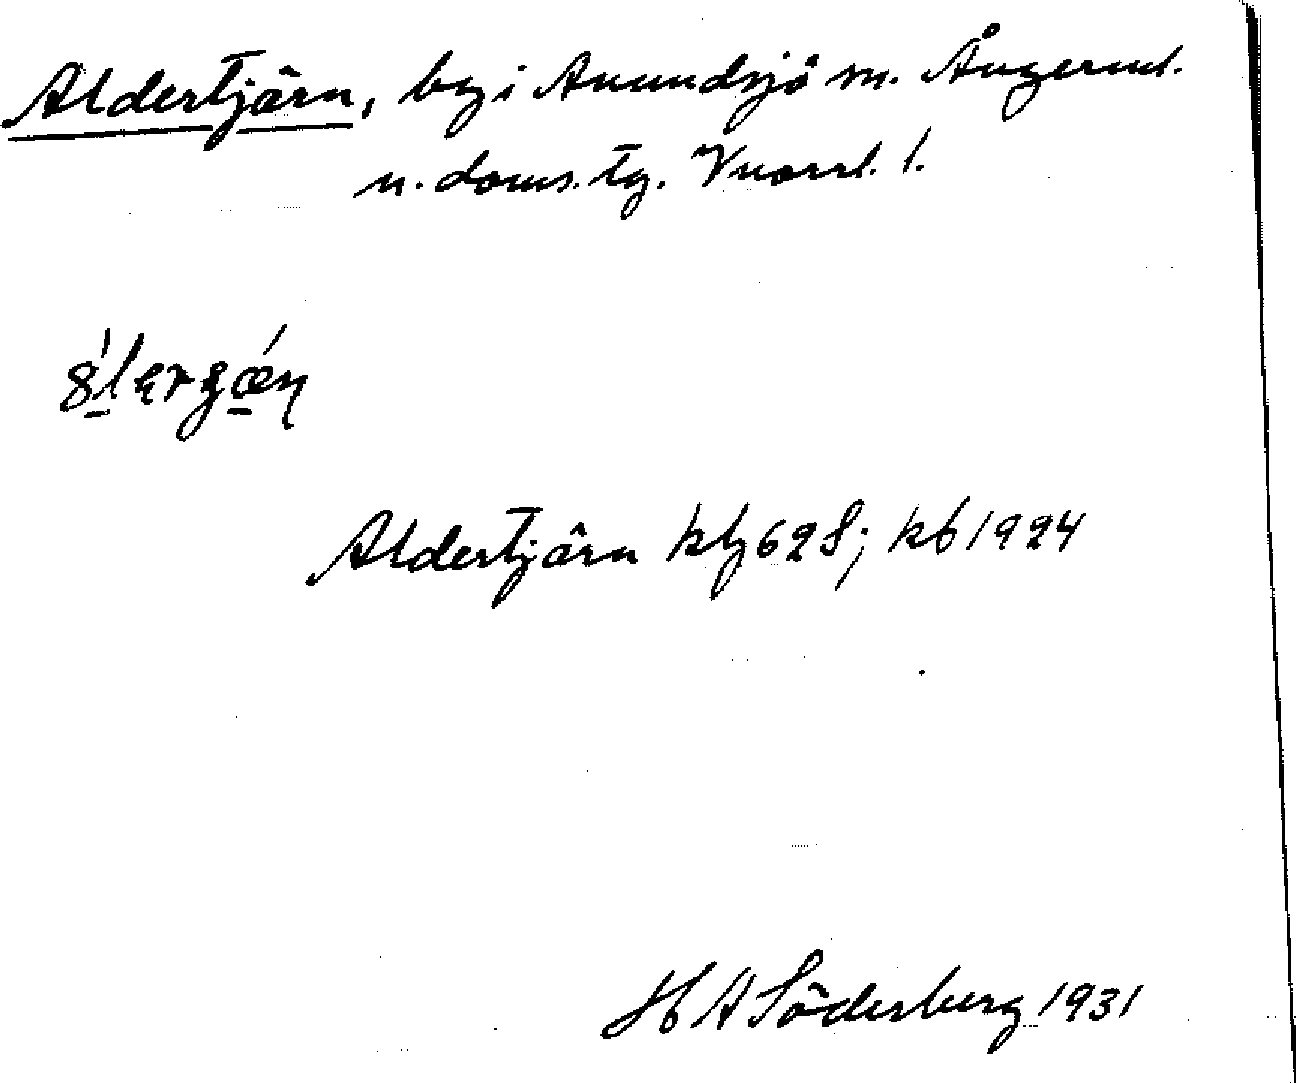 Aldertjärn, by i Anundsjö sn. Ångerml.
n. doms. tg. Vnorrl. l.
Aldertjärn kbg 62 S; kb 1924
H A Söderberg 1931